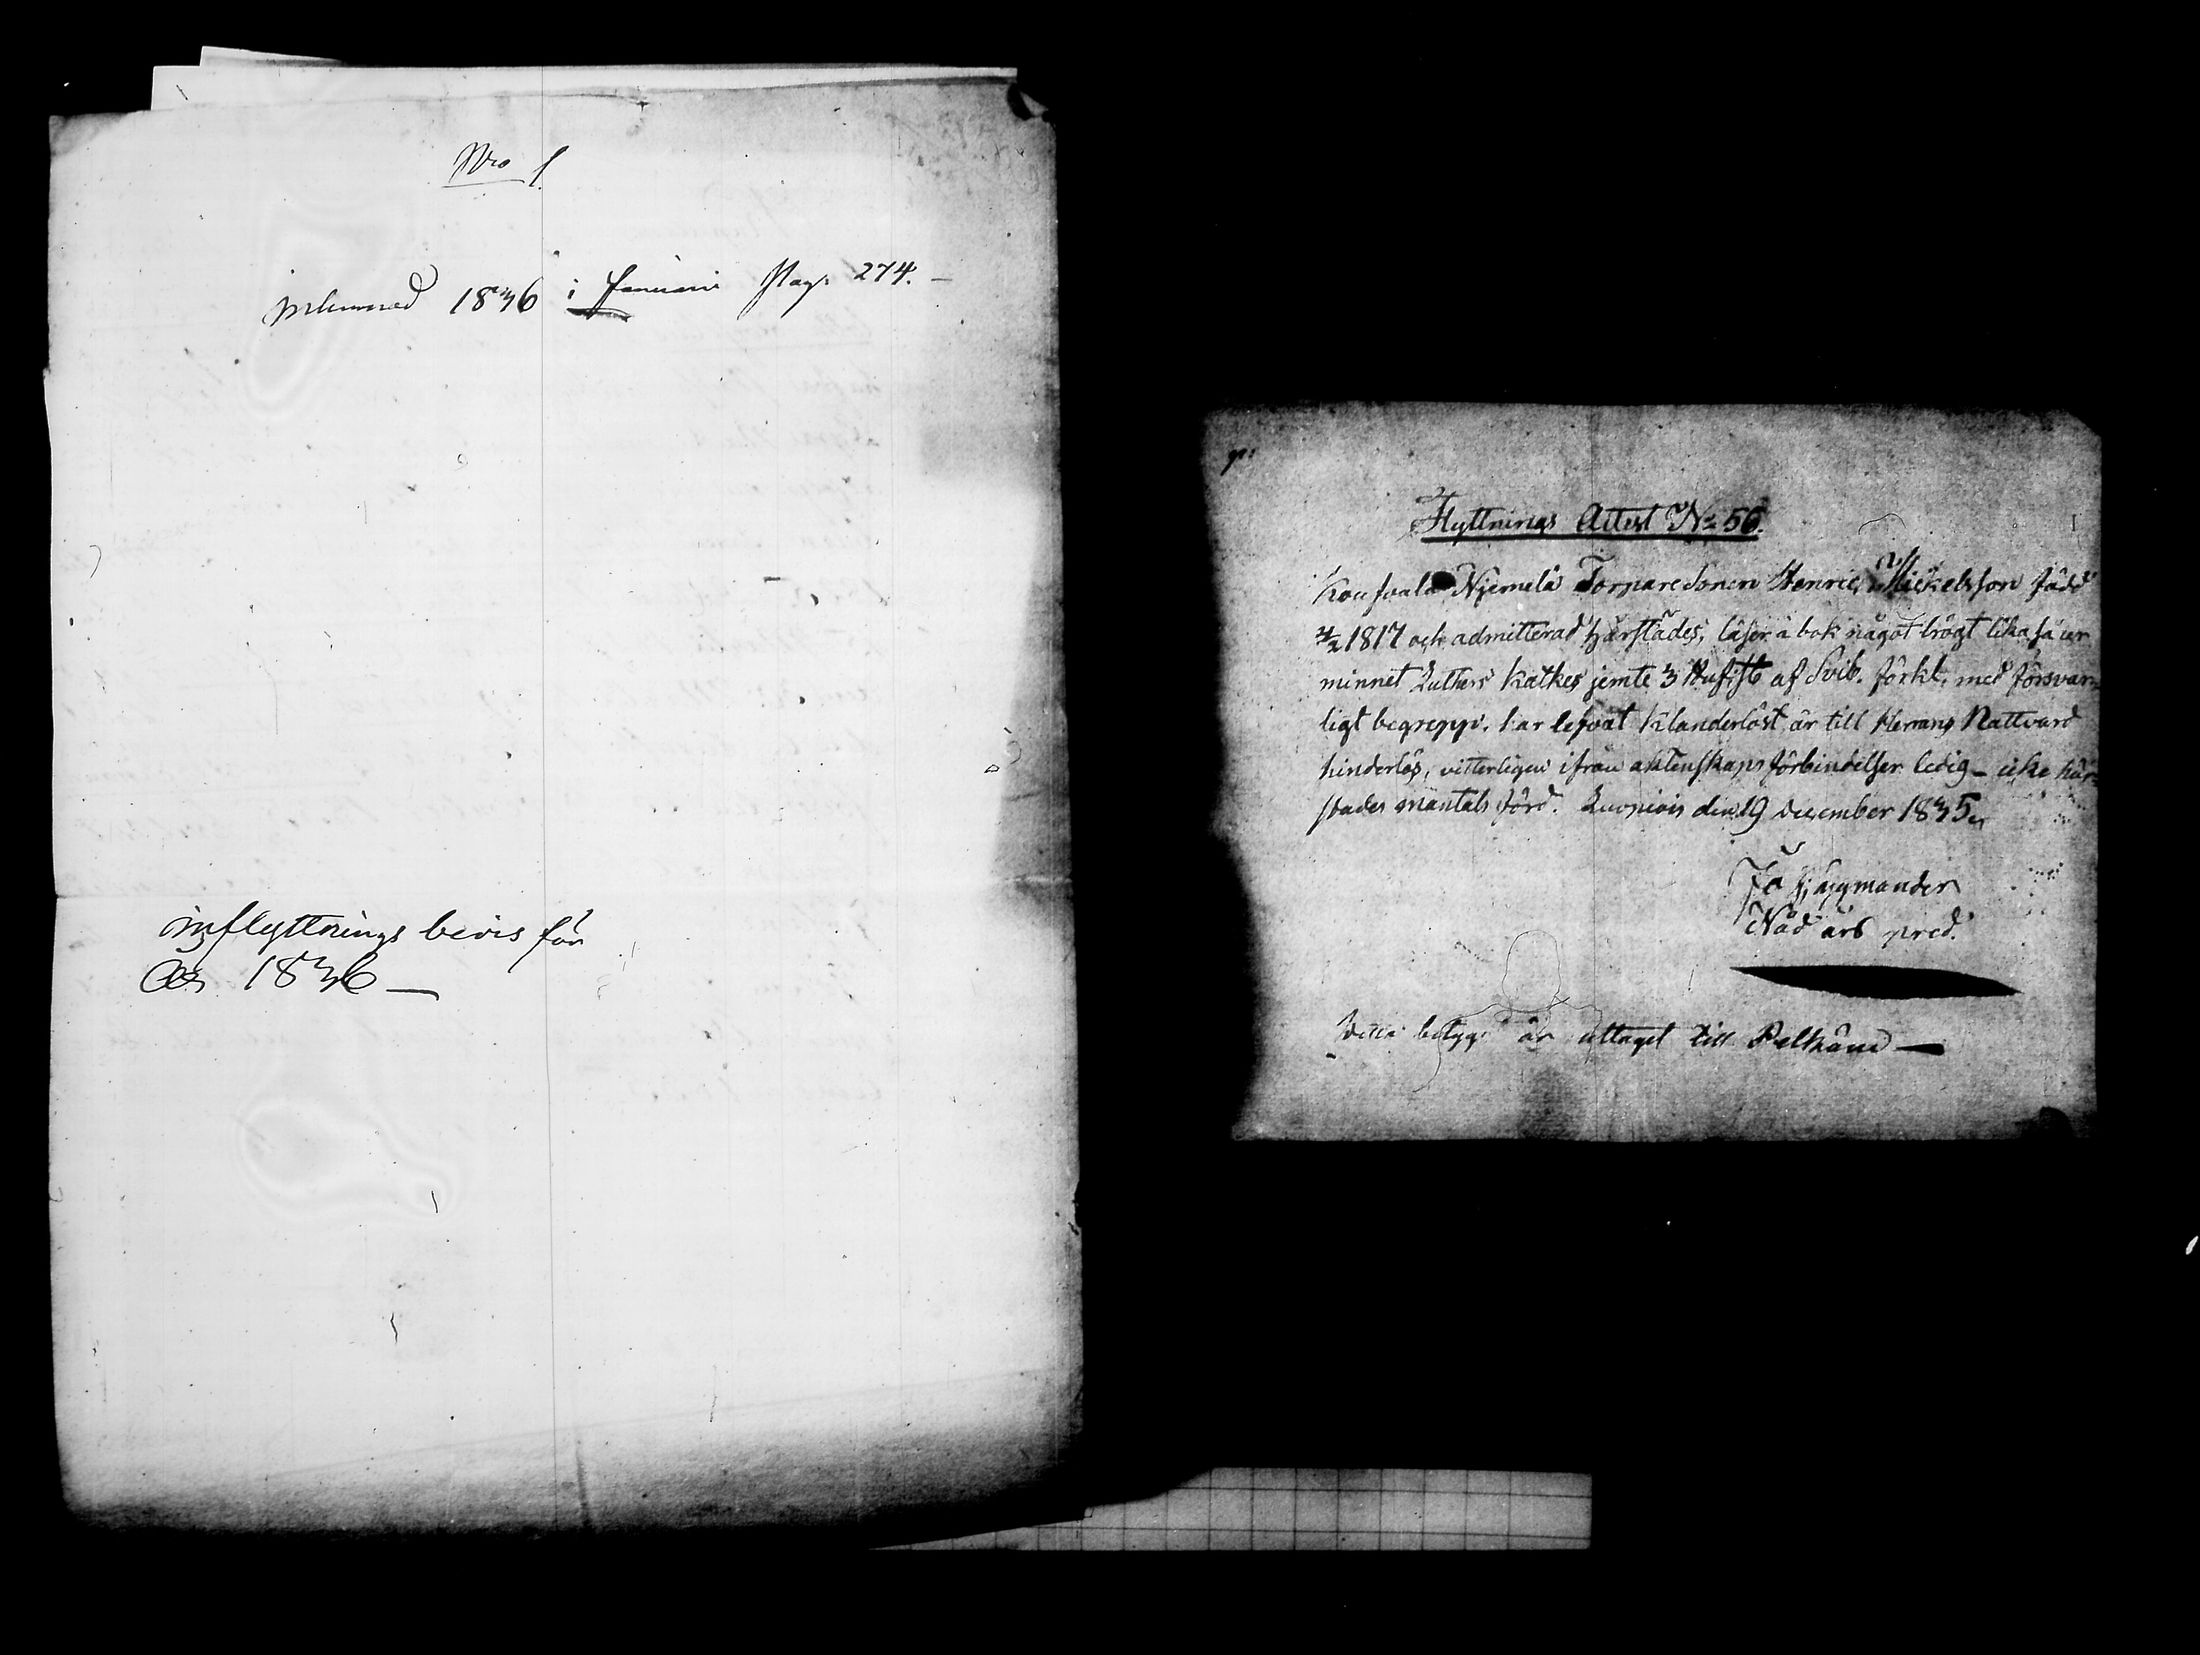 Nro 1
inlemnad 1836 i Januari Pag. 274.
inflyttnings bevis för
År 1836
Flyttnings Attest No 56.
Koufvala Njemelä Torparesonen Henric Mickelsson född
1817 och admitterad härstädes, läser i bok något trögt lika så ur
minnet Luthers Katkes jemte 3 Hufst af Svib. förkl. med försvar-
ligt begrepp. har lefvat klanderlöst är till Herrans Nattvard
hinderlös, vitterligen ifrån äktenskaps förbindelser ledig - icke här-
städes mantals förd. Luopiois den 19 December 1835
Nåd års pred.
Detta betyg är uttaget till Pelkäne